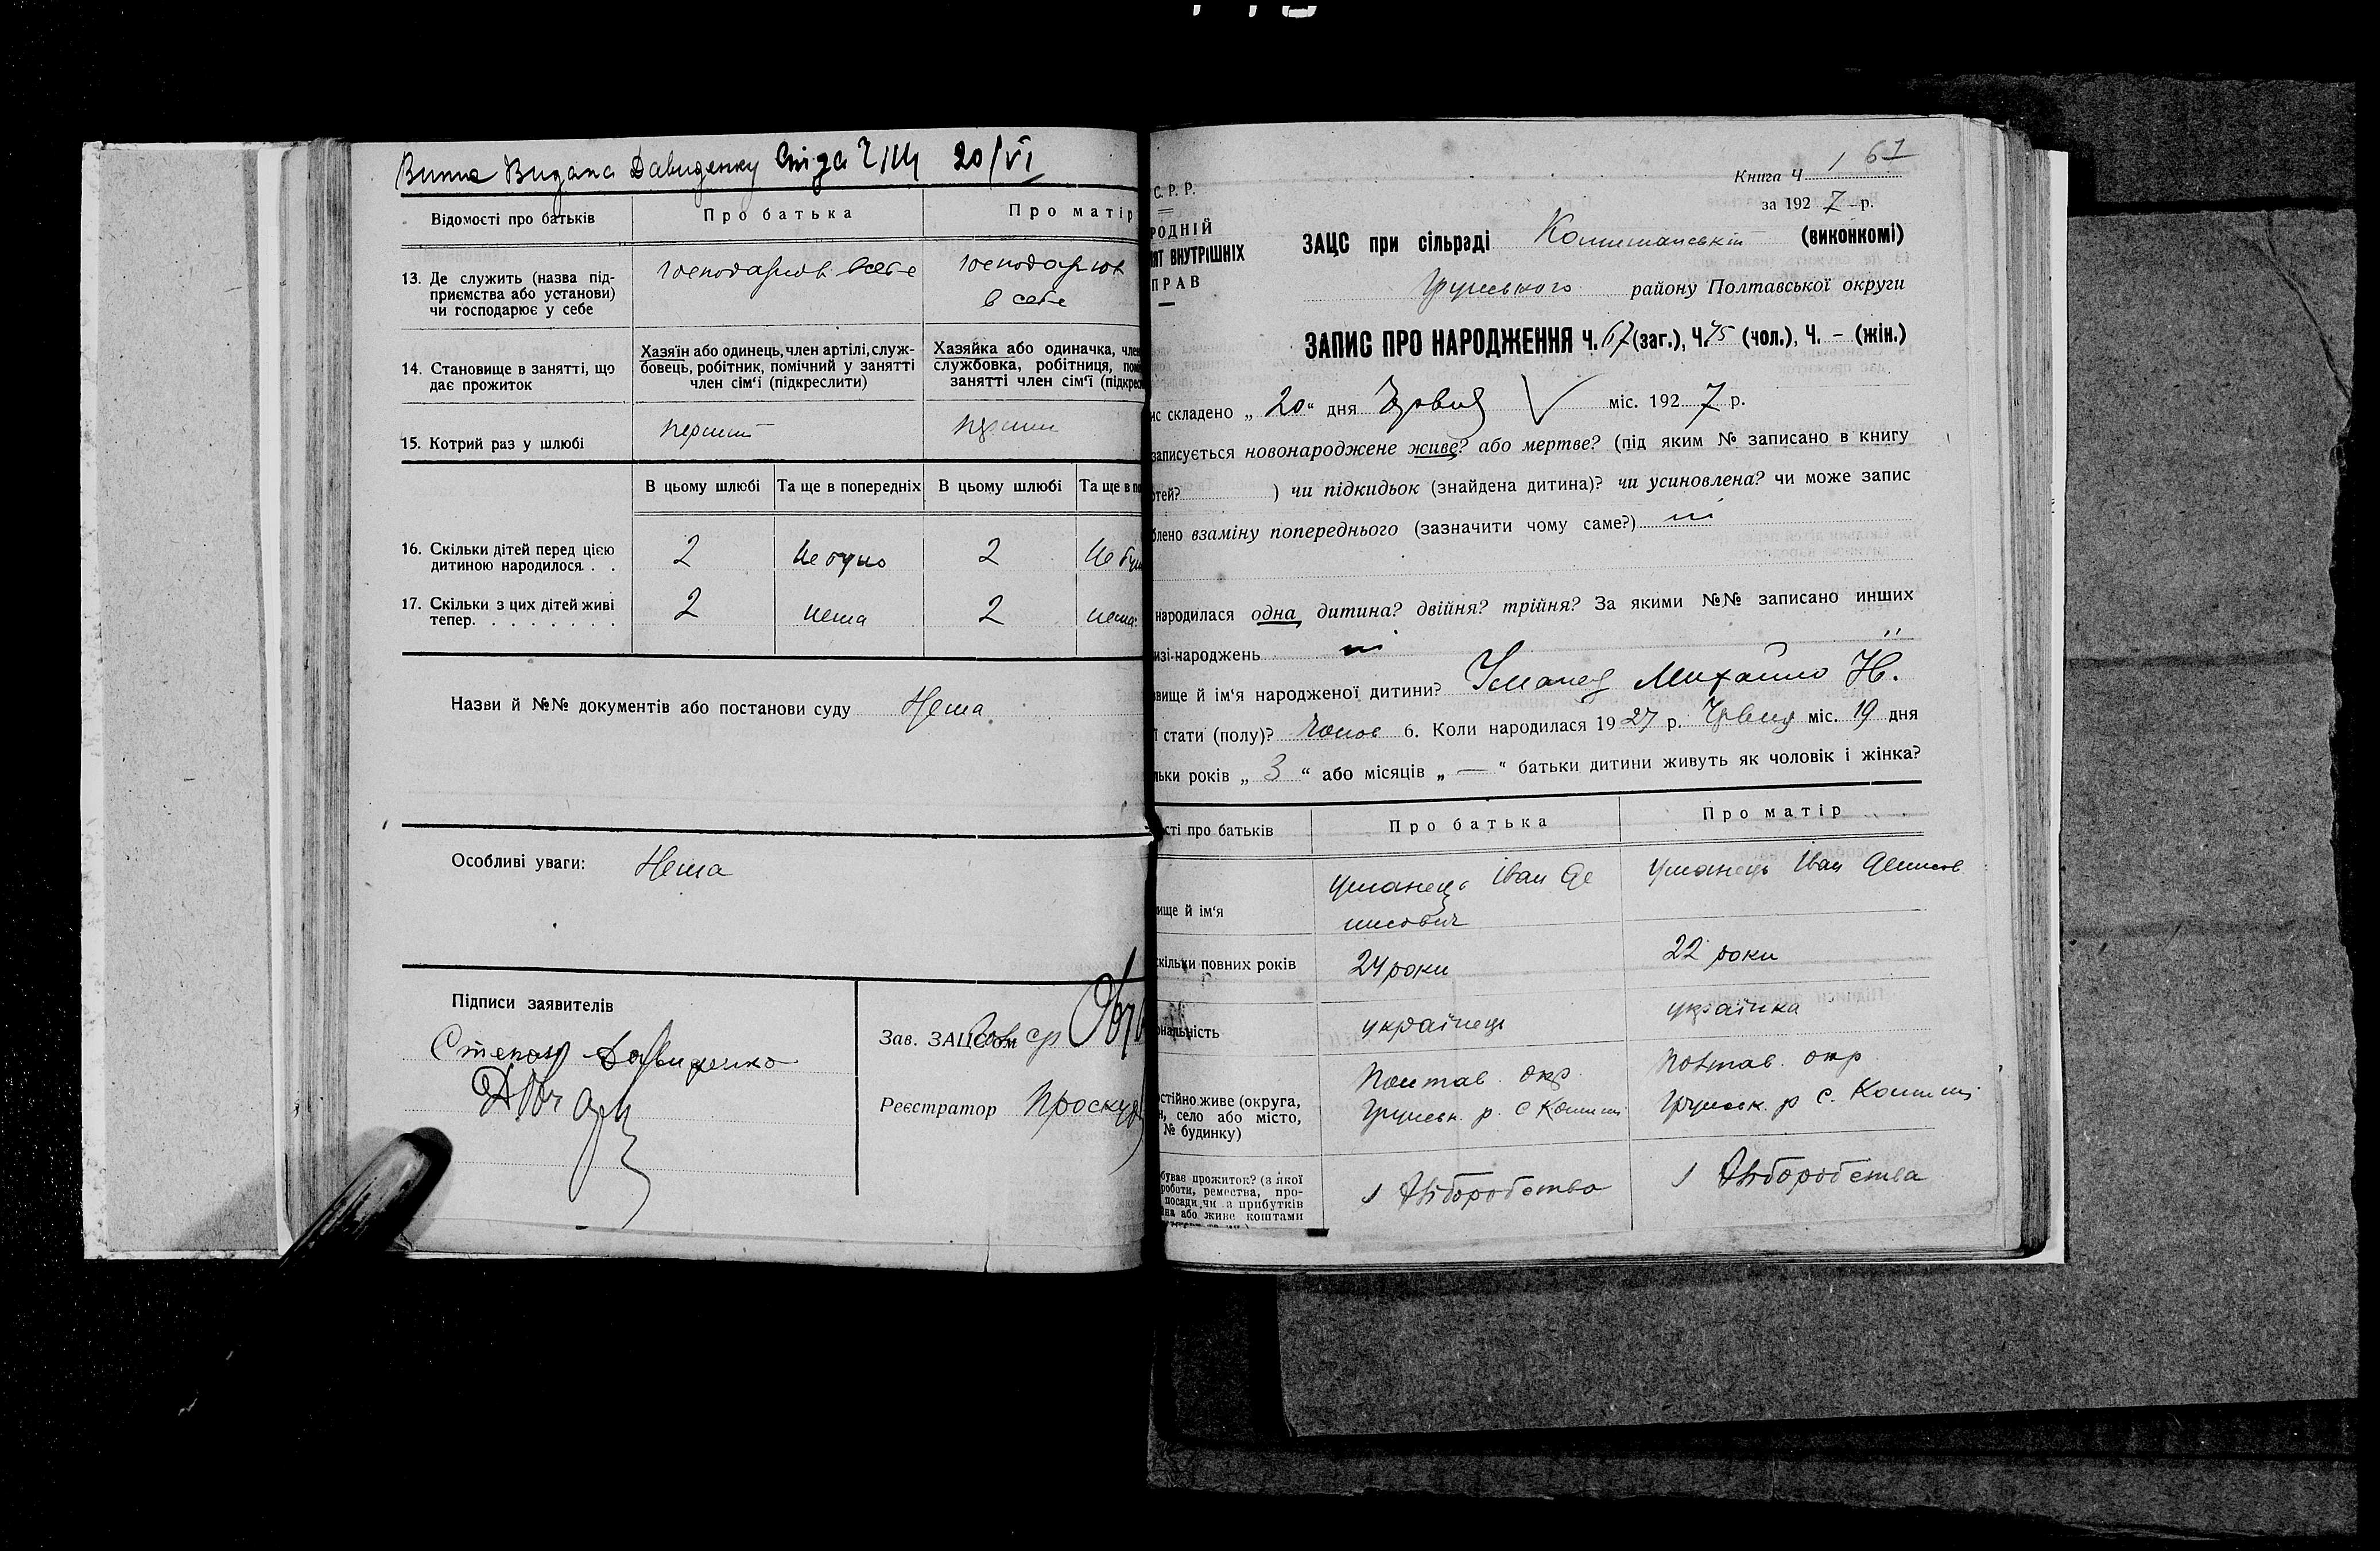 Виш Видана Давиденку 20/VI
Відомості про батьків
Про батька
Про матір
13. Де служить (назва під-
приємства або установи)
чи господарює у себе
господарює в себе
господарює
в себе
14. Становище в занятті, що
дає прожиток
Хазяїн або одинець, член артілі, служ-
бовець, робітник, помічний у занятті
член сім'ї (підкреслити)
Хазяйка або одиначка, член
службовка, робітниця,
занятті член сім'ї
15. Котрий раз у шлюбі
перший
В цьому шлюбі
Та ще в попередніх
В цьому шлюбі
Та ще в
16. Скільки дітей перед цією
дитиною народилося . .
2
не було
2
не
17. Скільки з цих дітей живі
тепер. . . . . . . .
2
нема
2
нема
Назви й №№ документів або постанови суду Нема
Особливі уваги: Нема
Підписи заявителів
Степан Давиденко
Зав. ЗАЦС'ом
Реєстратор
Книга Ч. 1 67
за 1927 р.
С. Р. Р.
РОДНІЙ
ІЯТ ВНУТРІШНІХ
ПРАВ
ЗАЦС при сільраді (виконкомі)
району Полтавської округи
ЗАПИС ПРО НАРОДЖЕННЯ Ч. 67 (заг.), Ч. (чол.), Ч. – (жін.)
складено „ 20 “ дня міс. 1927 р.
записується новонароджене живе? або мертве? (під яким № записано в книгу
ртей? ) чи підкидьок (знайдена дитина)? чи усиновлена? чи може запис
блено взаміну попереднього (зазначити чому саме?) ні
народилася одна дитина? двійня? трійня? За якими №№ записано инших
изі народжень ні
вище й ім'я народженої дитини? Уманец Михайло
стати (полу)? 6. Коли народилася 1927 р. міс. 19 дня
льки років „ 3 “ або місяців „ — “ батьки дитини живуть як чоловік і жінка?
сті про батьків
Про батька
Про матір
ище й ім'я
Уманець Іван Де
нисович
Уманець Іван Денисов
скільки повних років
24 роки
22 роки
ональність
українець
українка
стійно живе (округа,
н, село або місто,
№ будинку)
Полтав. окр.
Грунськ. р. с
Полтав. окр
Грунськ. р с.
буває прожиток? (з якої
роботи, ремества, про-
посади, чи з прибутків
або живе коштами
хліборобства
хліборобства